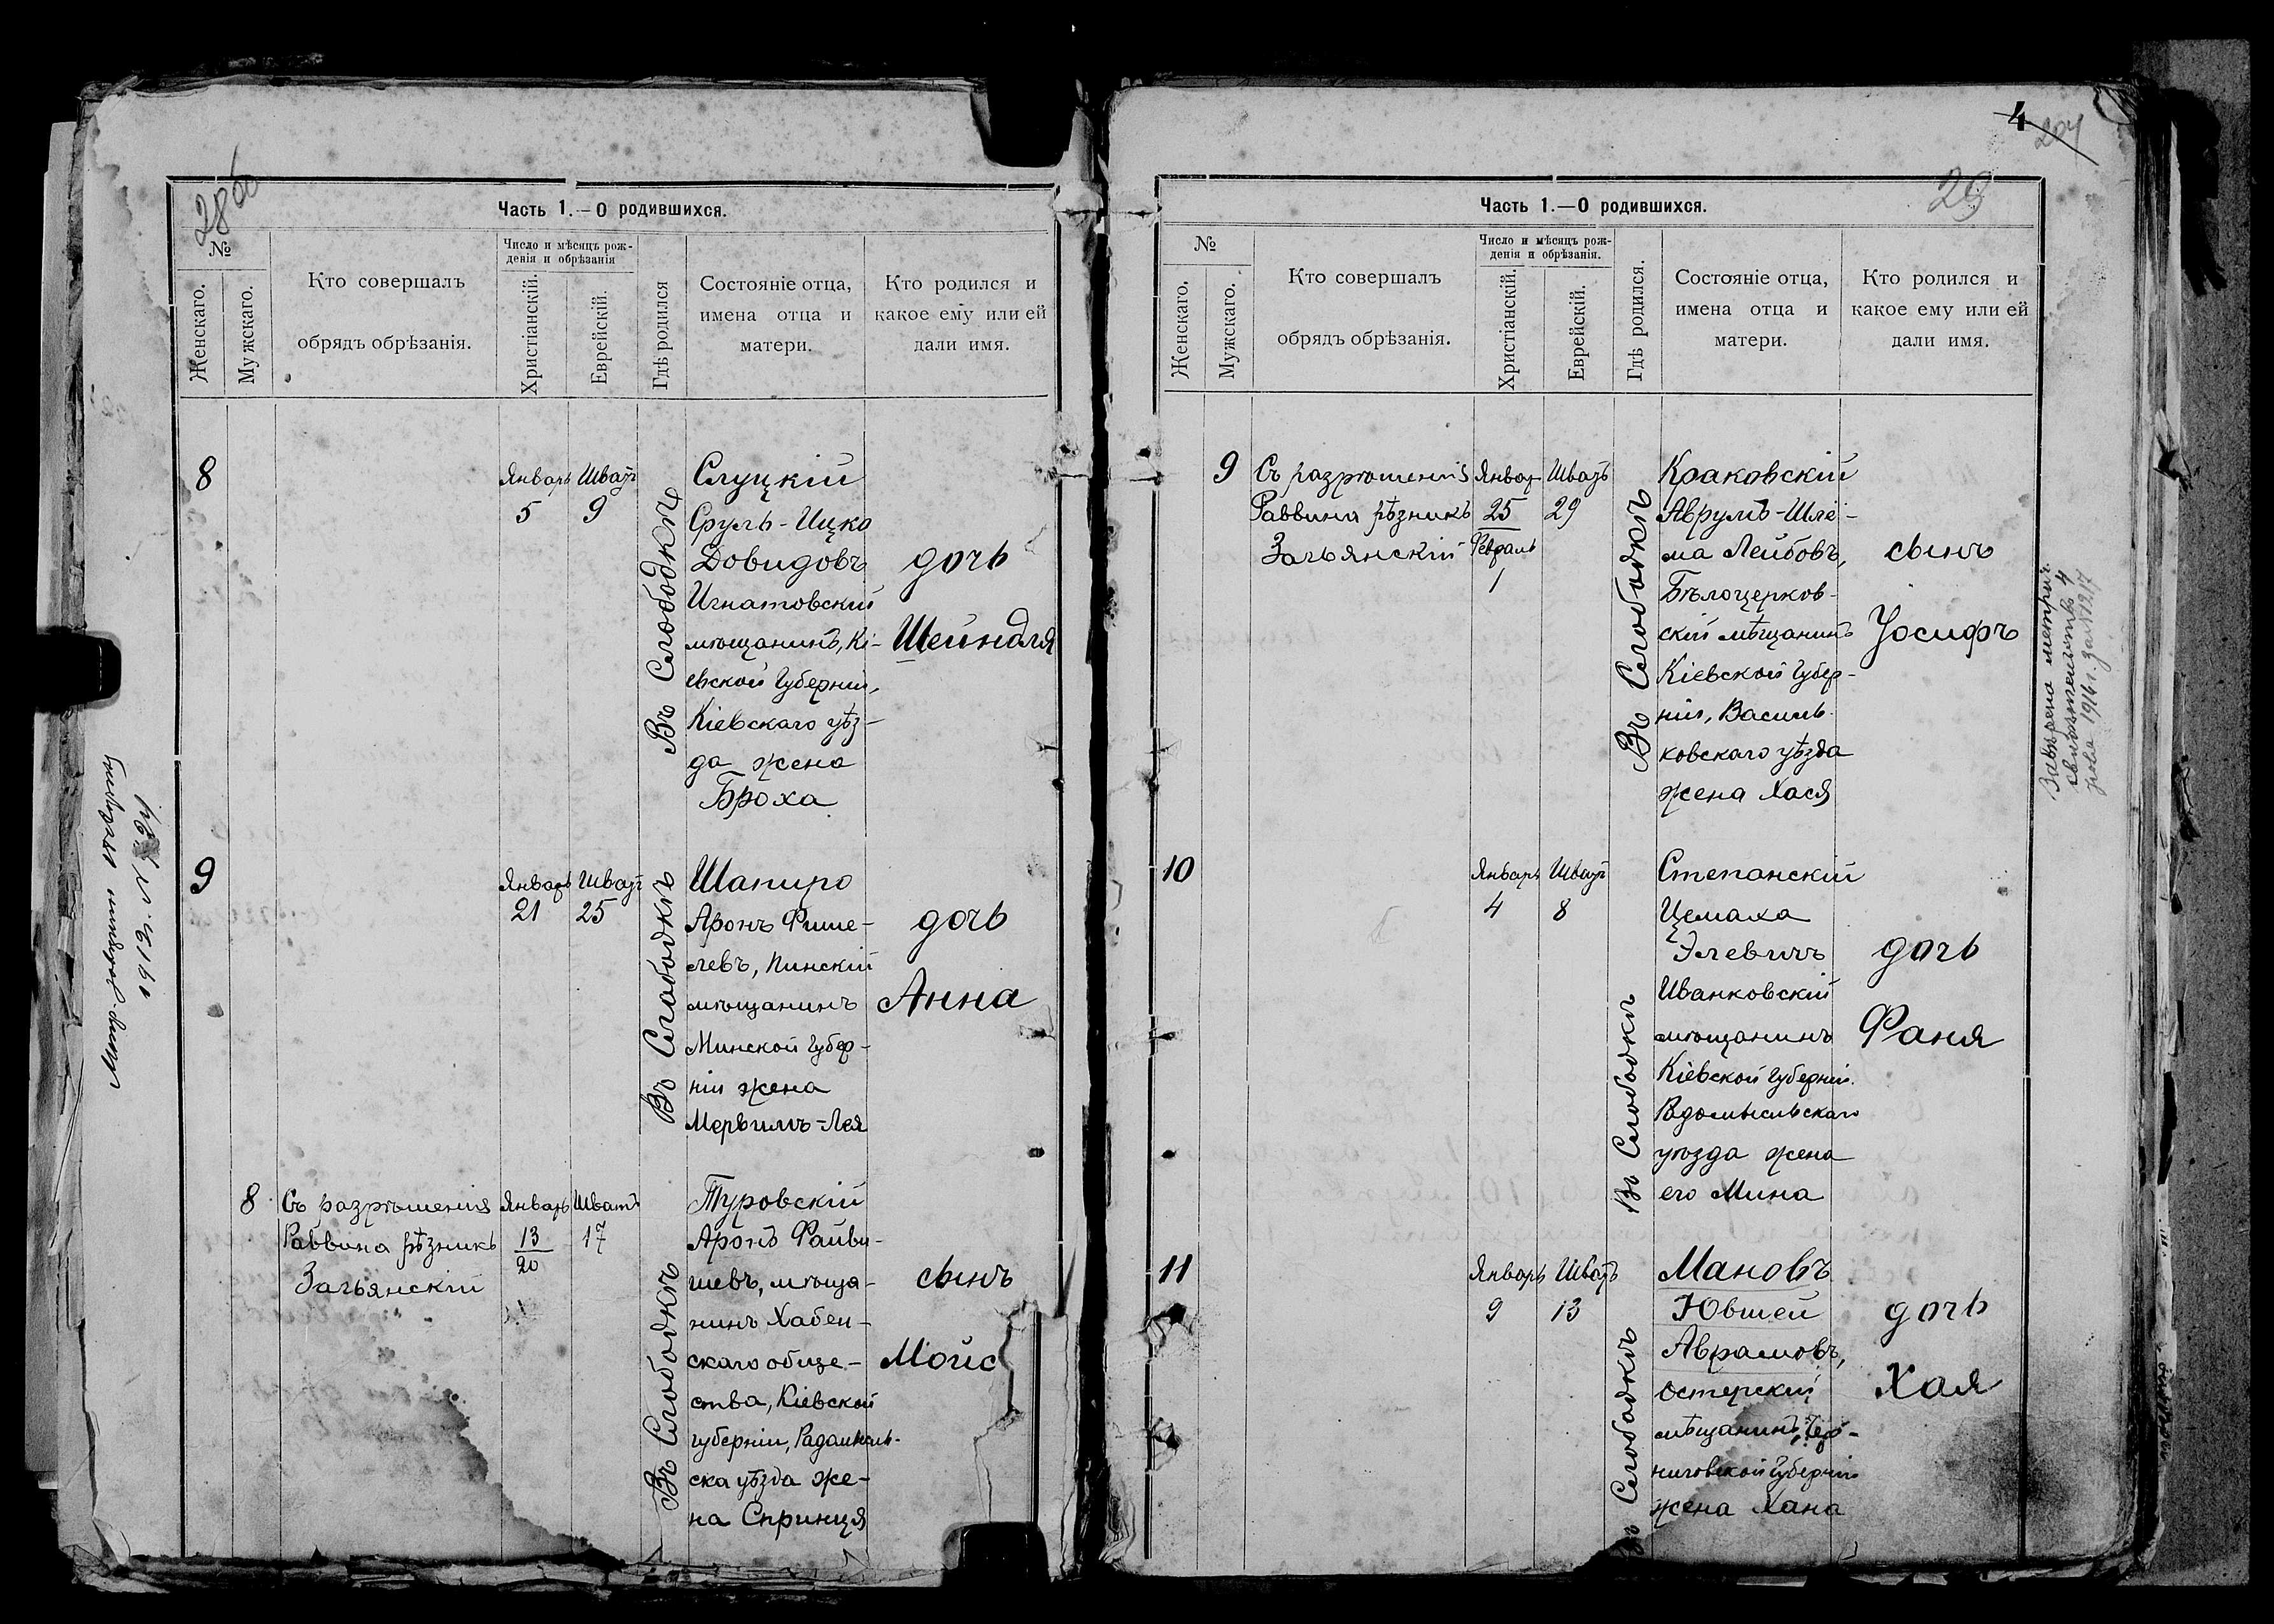 28об
Часть 1.—О родившихся.
№
Женскаго.
Мужскаго.
Кто совершалъ
обрядъ обрѣзанія.
Число и мѣсяцъ рож-
денія и обрѣзанія
Христіанскій.
Еврейскій.
Гдѣ родился
Состояніе отца,
имена отца и
матери.
Кто родился и
какое ему или ей
дали имя.
8
Январь Шватъ
5 9
Въ Слободкѣ
Слуцкій
Сруль-Ицко
Довидовъ
Игнатовскій
мѣщанинъ, Кі-
евской Губерніи,
Кіевскаго уѣз-
да жена
Броха
дочь
Шейндля
9
Январь Шватъ
21 25
Въ Слободкѣ
Шапиро
Аронъ Фише-
левъ, Пинскій
мѣщанинъ
Минской Губер-
ніи жена
Мерьимъ-Лея
дочь
Анна
8
Съ разрѣшенія
Раввина рѣзникъ
Зальянскій
Январь Шватъ
13 17
20
Въ Слободкѣ
Туровскій
Аронъ Файви-
шевъ, мѣща-
нинъ Хабен-
скаго обще-
ства, Кіевской
губерніи, Радомысль-
ска уѣзда же-
на Спринця
сынъ
Мойс
1913 г.
4
204
29
Часть 1.—О родившихся.
№
Женскаго.
Мужскаго.
Кто совершалъ
обрядъ обрѣзанія.
Число и мѣсяцъ рож-
денія и обрѣзанія.
Христіанскій.
Еврейскій.
Гдѣ родился.
Состояніе отца,
имена отца и
матери.
Кто родился и
какое ему или ей
дали имя.
9
Съ разрѣшенія
Раввина рѣзникъ
Зальянскій
Январ Шватъ
25 29
Февраль
1
Въ Слободкѣ
Краковскій
Аврумъ-Шлё-
ма Лейбовъ,
Бѣлоцерков-
скій мѣщанинъ
Кіевской Губер-
ніи, Василь-
ковскаго уѣзда
жена Хася
сынъ
Іосифъ
10
Январь Шватъ
4 8
Въ Слободкѣ
Степанскій
Цемаха
Элевичъ
Иванковскій
мѣщанинъ
Кіевской Губерніи.
Радомысльскаго
уѣзда жена
его Мина
дочь
Фаня
11
Январь Шватъ
9 13
Въ Слободкѣ
Мановъ
Ювшей
Аврамовъ,
Остерскій
мѣщанинъ, Чер-
ниговской Губерніи
жена Хана
дочь
Хая